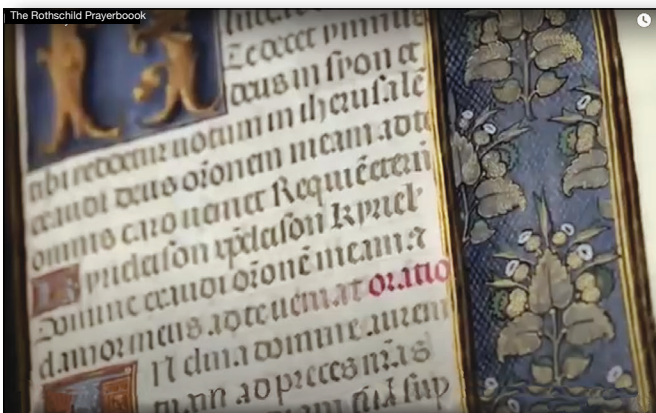 The Rothschild Prayerboook
Te decet ymnus
deus in syon et
tibi reddetur uotum in iherusalē
exaudi deus orōnem meam ad te
omnis caro ueniet Requiē eternā
Kyrieleison xp̄eleison kyriel'
Domine exaudi orōnē meam. ⁊
clamor meus ad te ueniat oratio
Inclina domine aurem
tuam ad preces nr̄as